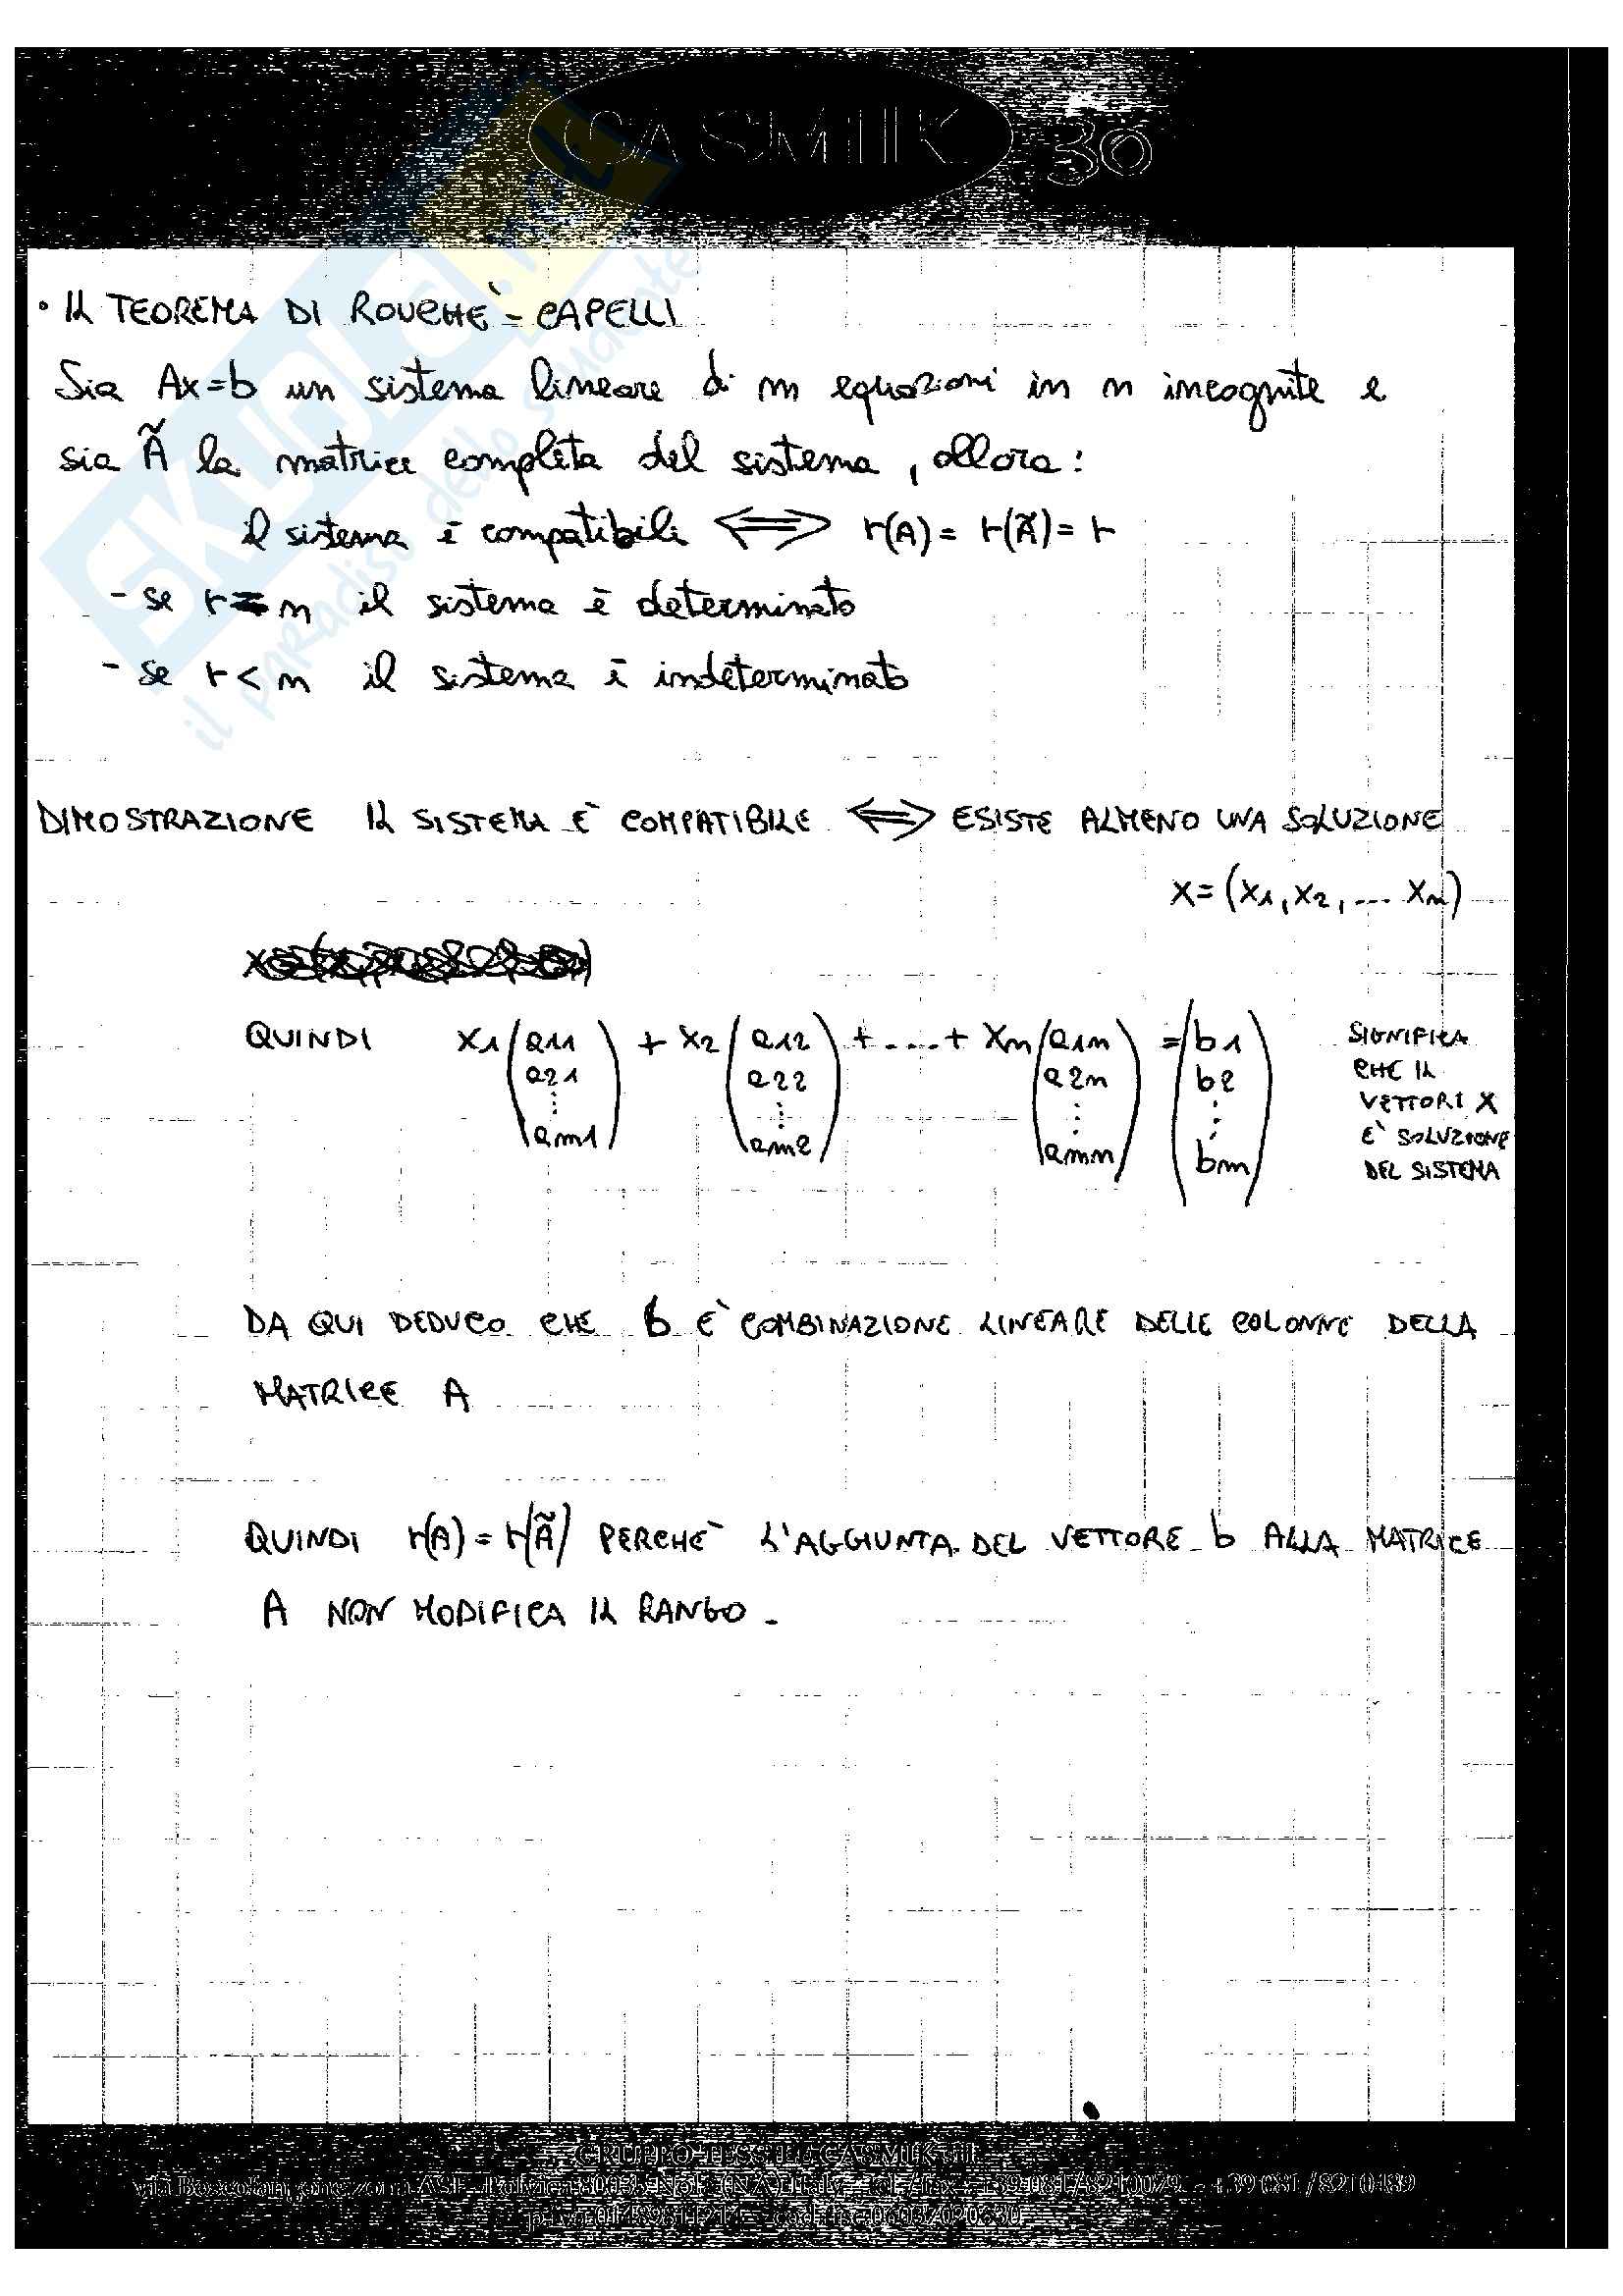 CASMIK 30
• IL TEOREMA DI ROUCHÈ - CAPELLI
Sia Ax=b un sistema lineare di m equazioni in n incognite e
sia Ã la matrice completa del sistema, allora:
il sistema è compatibile ⟺ r(A) = r(Ã) = r
- se r = n il sistema è determinato
- se r < n il sistema è indeterminato
DIMOSTRAZIONE IL SISTEMA È COMPATIBILE ⟺ ESISTE ALMENO UNA SOLUZIONE
x = (x1, x2, .... xn)
QUINDI x1 (a11 a21 ⋮ am1) + x2 (a12 a22 ⋮ am2) + .... + xn (a1n a2n ⋮ amn) = (b1 b2 ⋮ bm)
SIGNIFICA
CHE IL
VETTORE X
E' SOLUZIONE
DEL SISTEMA
DA QUI DEDUCO CHE b E' COMBINAZIONE LINEARE DELLE COLONNE DELLA
MATRICE A
QUINDI r(A) = r(Ã) PERCHE' L'AGGIUNTA DEL VETTORE b ALLA MATRICE
A NON MODIFICA IL RANGO.
SKUOLA.net
il paradiso dello studente
GRUPPO TESSILE CASMIK srl